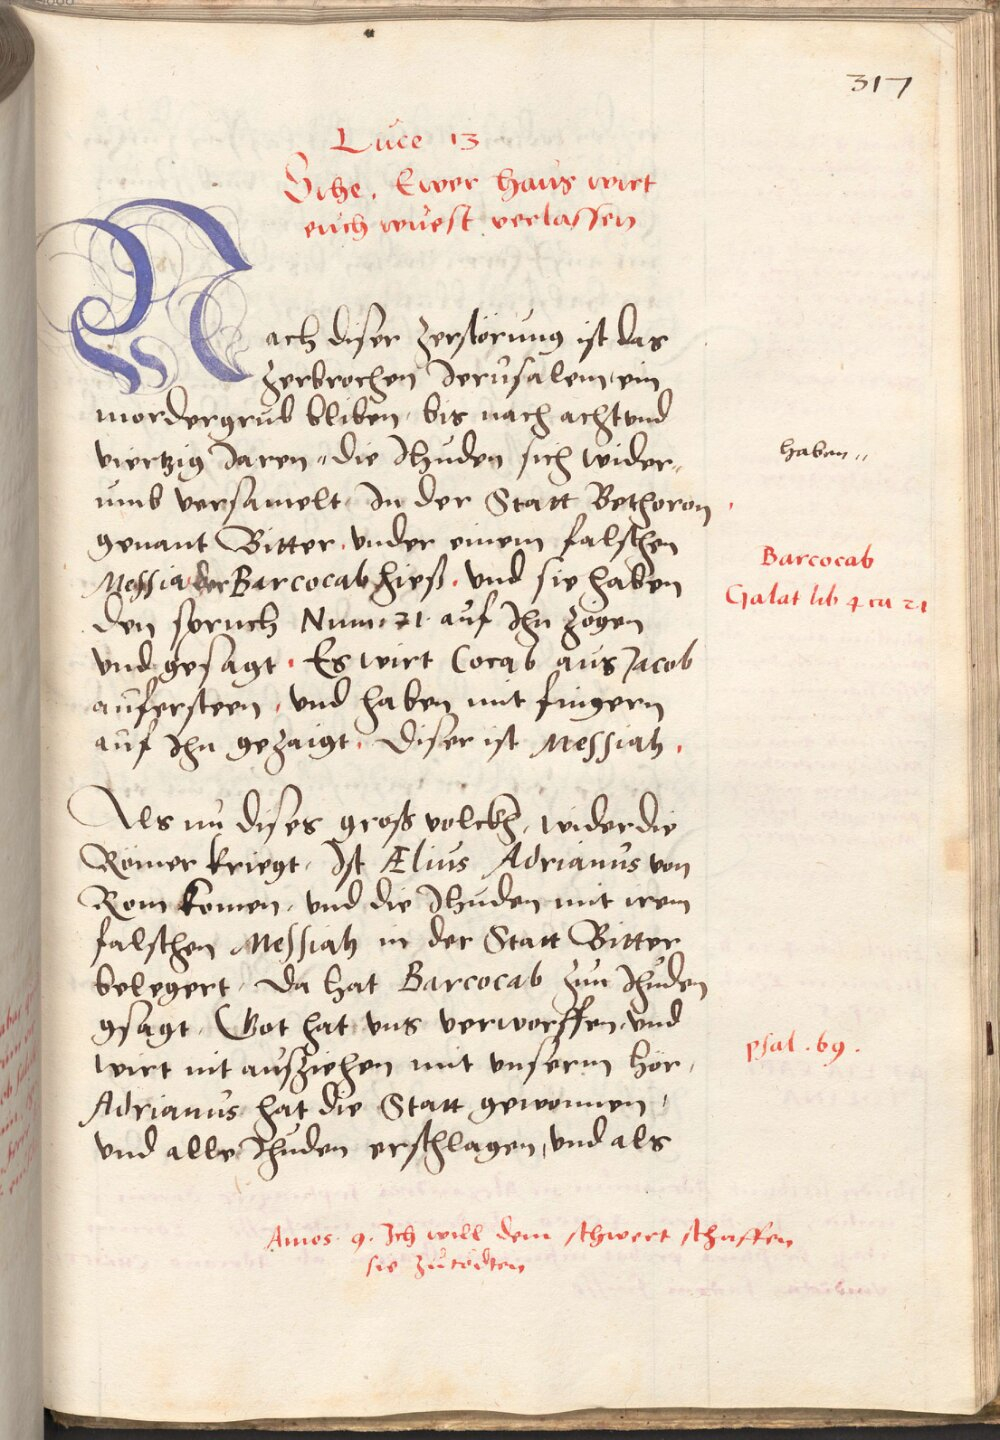 317
Luce 13
Sihe. Ewer haus wirt
euch wuest verlassen
Nach diser zerstörung ist das
zerbrochen Jerusalem, ein
mordergrub bliben, bis nach acht vnd
viertzig Jaren, die Jhuden sich wider,,
umb versamelt In der Statt Bethoron
haben,,
genant Bitter, vnder einem falschen
Messia der Barcocab hieß. Vnd sie haben
Barcocab
Galat lib 4 ca 21
den spruch Num: 21 auf Ihn zogen
vnd gesagt. Es wirt Cocab aus Jacob
aufersteen, vnd haben mit fingern
auf Ihn gezaigt. Diser ist Messiah.
Als nu dises groß volckh, wider die
Römer kriegt, Ist Ælius Adrianus von
Rom komen, vnd die Jhuden mit irem
falschen Messiah in der Statt Bitter
belegert, Da hat Barcocab zun Jhuden
gsagt, Got hat vns verworffen, vnd
wirt nit ausziehen mit vnserm hör,
psal. 69.
Adrianus hat die Statt gewonnen,
vnd alle Jhuden erschlagen, vnd als
Amos 9. Ich will dem schwert schaffen
sie zu tödten